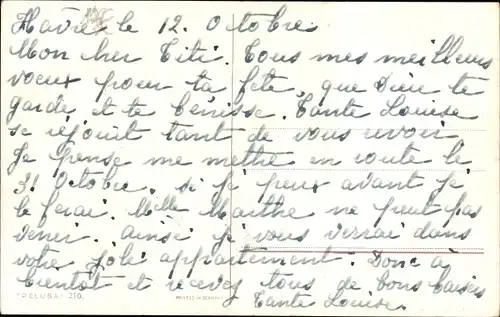 Havre le 12. Octobre
Mon cher Titi. Tous mes meilleurs
voeux pour ta fête, que Dieu te
garde et te bénisse. Tante Louise
se réjouit tant de vous revoir
Je pense me metthe en route le
31 Octobre. si je peux avant je
le ferai. Mlle Marthe ne peut pas
venir. ainsi je vous verrai dans
votre joli appartement. Donc à
bientot et recevez tous de bons baisers
Tante Louise.
"DELUBA" 210.
PRINTED IN GERMANY